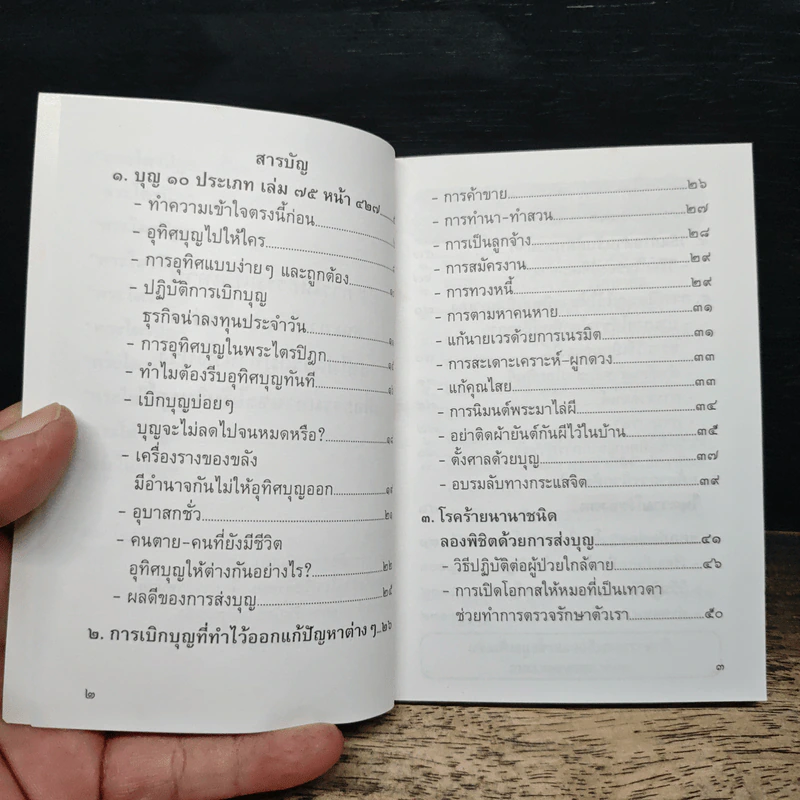 สารบัญ
๑. บุญ ๑๐ ประเภท เล่ม ๗๕ หน้า ๔๒๗
- ทำความเข้าใจตรงนี้ก่อน
- อุทิศบุญไปให้ใคร
- การอุทิศแบบง่ายๆ และถูกต้อง
- ปฏิบัติการเบิกบุญ
ธุรกิจน่าลงทุนประจำวัน
- การอุทิศบุญในพระไตรปิฎก
- ทำไมต้องรีบอุทิศบุญทันที
- เบิกบุญบ่อยๆ
บุญจะไม่ลดไปจนหมดหรือ?
- เครื่องรางของขลัง
มีอำนาจกันไม่ให้อุทิศบุญออก
- อุบาสกชั่ว
- คนตาย-คนที่ยังมีชีวิต
อุทิศบุญให้ต่างกันอย่างไร? ๒๒
- ผลดีของการส่งบุญ
๒. การเบิกบุญที่ทำไว้ออกแก้ปัญหาต่างๆ ๒๖
๒
- การค้าขาย ๒๖
- การทำนา-ทำสวน ๒๗
- การเป็นลูกจ้าง ๒๘
- การสมัครงาน ๒๙
- การทวงหนี้ ๒๙
- การตามหาคนหาย ๓๑
- แก้นายเวรด้วยการเนรมิต ๓๑
- การสะเดาะเคราะห์-ผูกดวง ๓๓
- แก้คุณไสย ๓๓
- การนิมนต์พระมาไล่ผี ๓๔
- อย่าติดผ้ายันต์กันผีไว้ในบ้าน ๓๕
- ตั้งศาลด้วยบุญ ๓๗
- อบรมลับทางกระแสจิต ๓๙
๓. โรคร้ายนานาชนิด
ลองพิชิตด้วยการส่งบุญ ๔๑
- วิธีปฏิบัติต่อผู้ป่วยใกล้ตาย ๔๖
- การเปิดโอกาสให้หมอที่เป็นเทวดา
ช่วยทำการตรวจรักษาตัวเรา ๕๐
๓